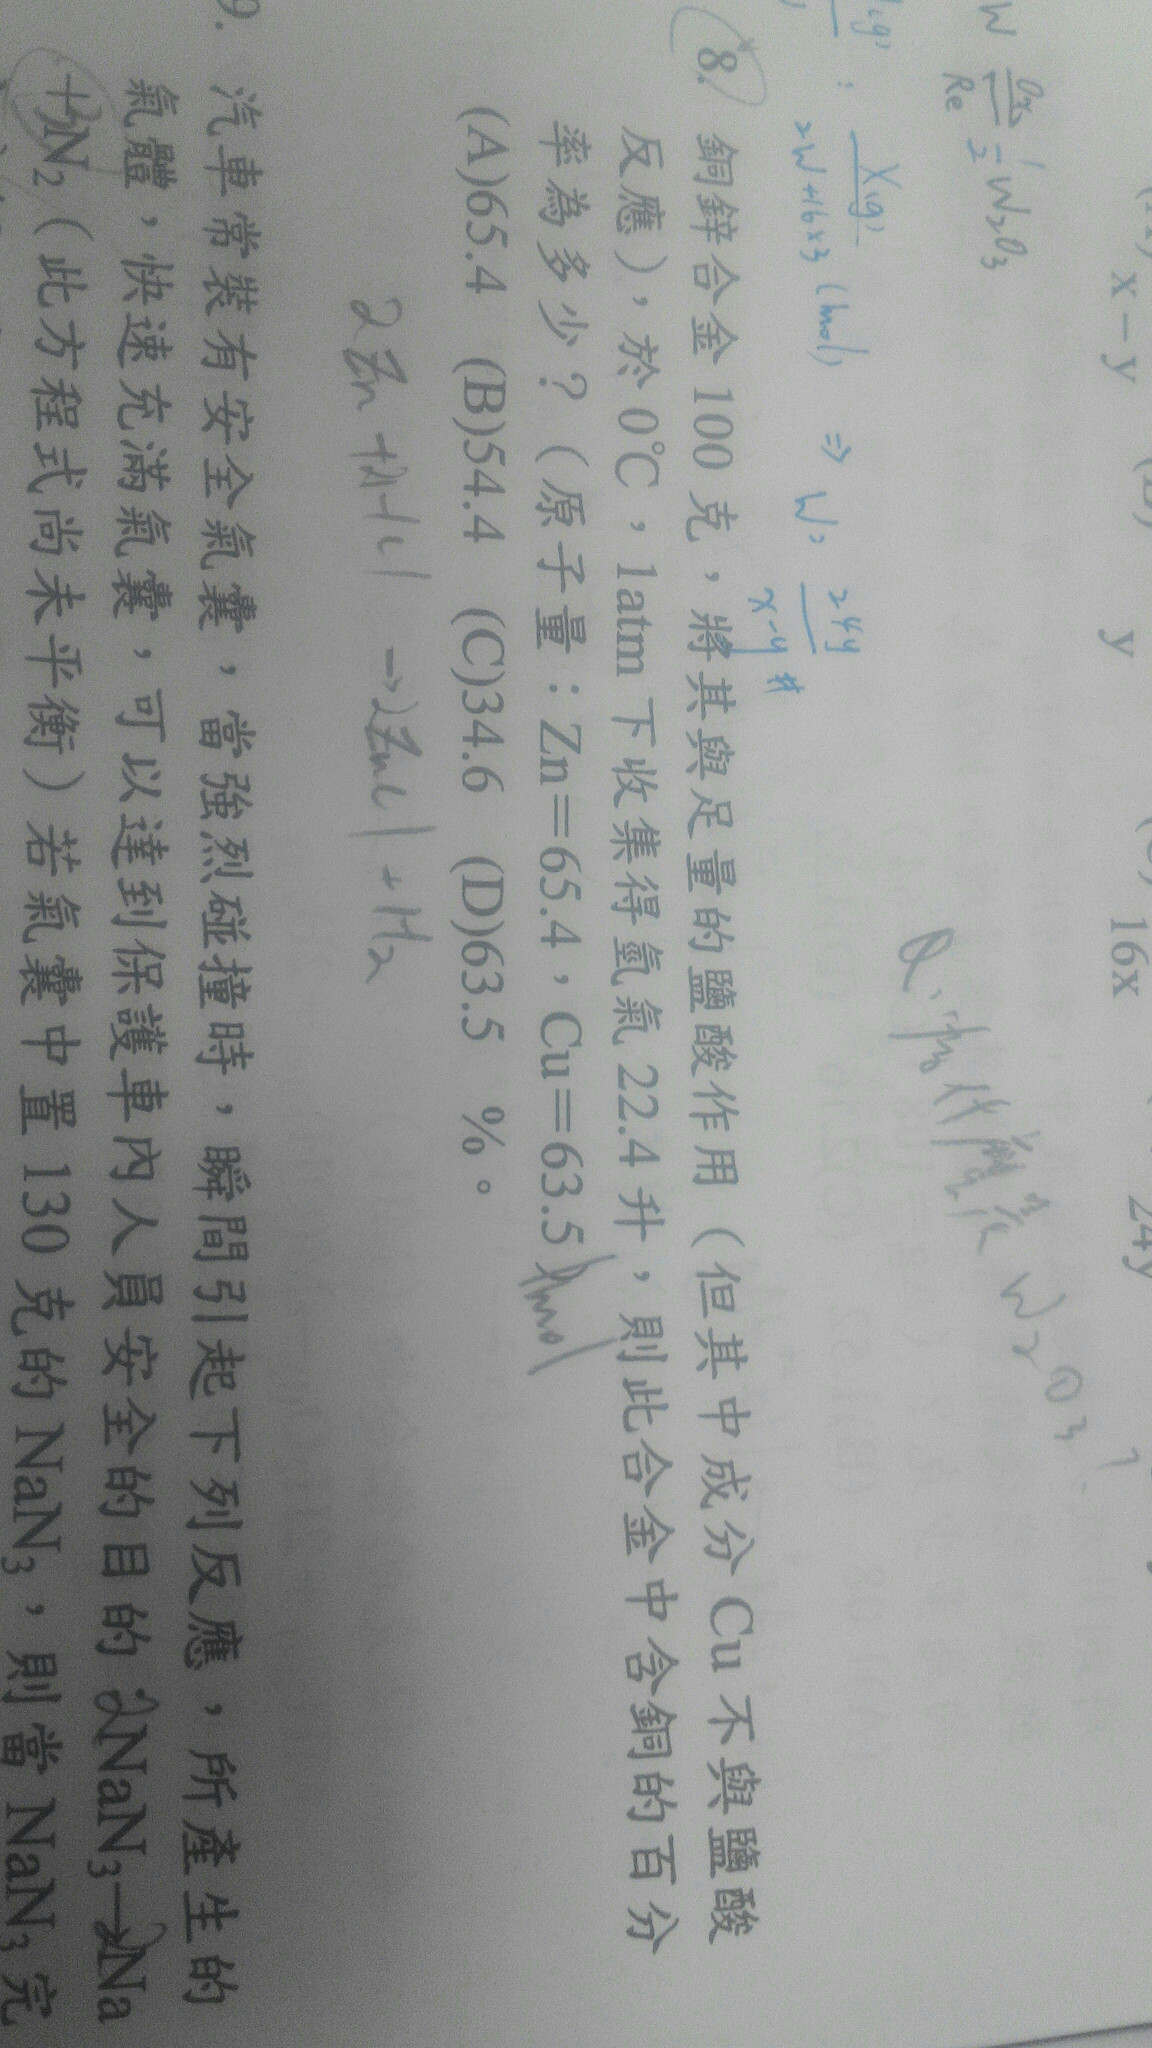 x－y
y
16x
24y
W Ox/Re ½W₂O₃
X(g)/2W+16×3 (mol) ⇒ W= 24y/x-y #
W₂O₃?
8. 銅鋅合金 100 克，將其與足量的鹽酸作用（但其中成分 Cu 不與鹽酸
反應），於 0℃，1atm 下收集得氫氣 22.4 升，則此合金中含銅的百分
率為多少？（原子量：Zn＝65.4，Cu＝63.5
1mol
(A)65.4 (B)54.4 (C)34.6 (D)63.5 %。
2Zn+2HCl→2ZnCl+H₂
9. 汽車常裝有安全氣囊，當強烈碰撞時，瞬間引起下列反應，所產生的
氣體，快速充滿氣囊，可以達到保護車內人員安全的目的 2NaN₃→2Na
+3N₂（此方程式尚未平衡）若氣囊中置 130 克的 NaN₃，則當 NaN₃完